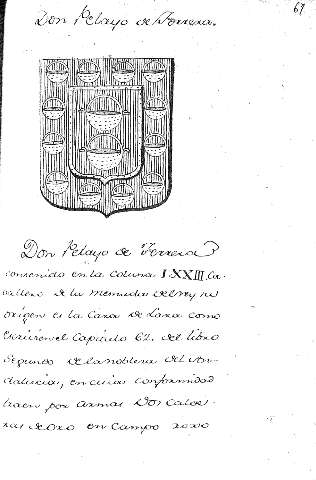 67
Don Pelayo de Ferrera.
Don Pelayo de Ferrera
contenido en la coluna LXXIII. Ca-
vallero de la
origen es la Casa de Lara como
escrive en el Capitulo 62. del libro
segundo de la nobleza del An-
daluzia, en cuia conformidad
traen por armas Dos Calde-
ras de Oro en Campo roxo